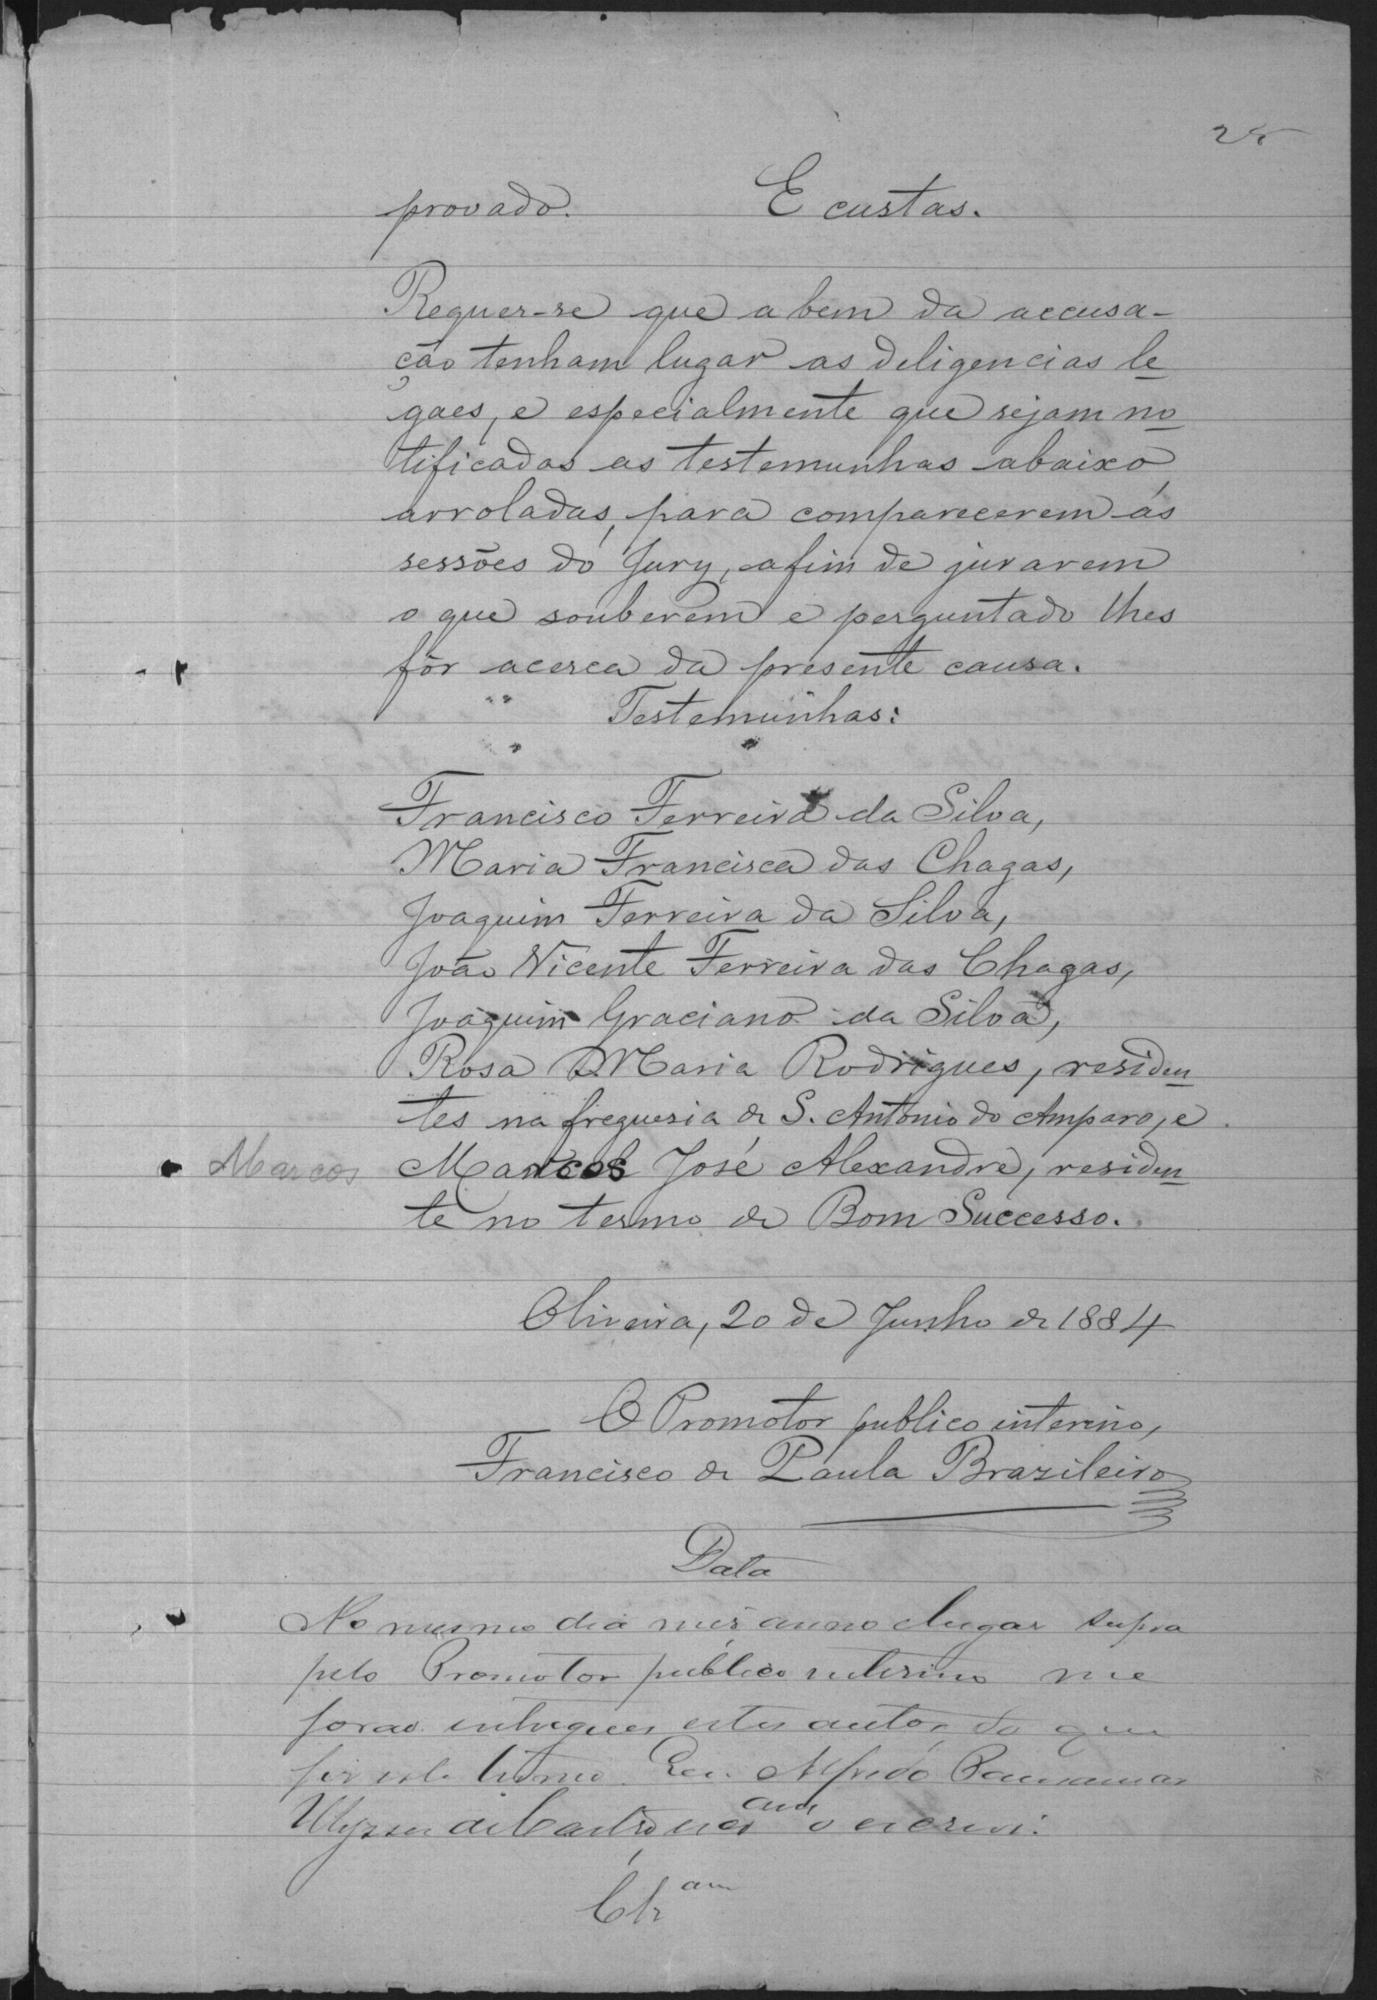 provado. E custas.
Requer-se que a bem da accusa-
ção tenham lugar as deligencias le
gaes, e especialmente que sejam no
tificadas as testemunhas abaixo
arroladas, para comparecerem ás
sessões do Jury, afim de jurarem
o que souberem e perguntado lhes
fôr acerca da presente causa.
Testemunhas:
Francisco Ferreira da Silva,
Maria Francisca das Chagas,
Joaquim Ferreira da Silva,
João Vicente Ferreira das Chagas,
Joaquim Graciano da Silva,
Rosa Maria Rodrigues, residen
tes na freguesia de S. Antonio do Amparo, e
Marcos Marcos José Alexandre, residen
te no termo de Bom Successo.
Oliveira, 20 de Junho de 1884
O Promotor publico interino,
Francisco de Paula Brazileiro
Data
No mesmo dia mês anno e lugar supra
pelo Promotor publico interino me
forão entregues estes autos, do que
fiz este termo. Eu Alfredo
Ulysses de Castro o escrevi.